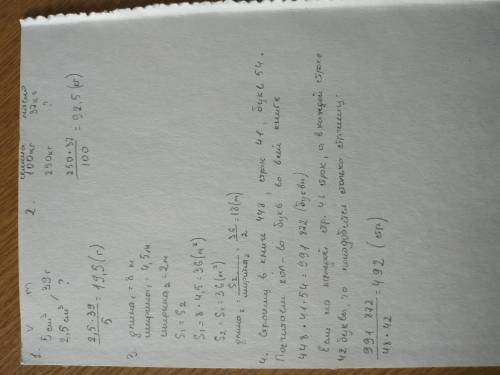 1. V m
5 см³ / 39 г
2,5 см³ ?
2,5 · 39 / 5 = 19,5 (г)
2. 100 кг 37 кг
250 кг ?
250 · 37 / 100 = 92,5 (кг)
3. длина₁ = 8 м
ширина₁ = 4,5 м
ширина₂ = 2 м
S₁ = S₂
S₁ = 8 · 4,5 = 36 (м²)
S₂ = S₁ = 36 (м²)
длина₂ = S₂ / ширина₂ = 36 / 2 = 18 (м)
4. Страниц в книге 448, строк 41, букв 54.
Посчитаем кол-во букв во всей книге
448 · 41 · 54 = 991 872 (буквы)
Если на каждой стр. 48 строк, а в каждой строке
42 буквы, то понадобится столько страниц:
991 872 / 48 · 42 = 492 (стр)